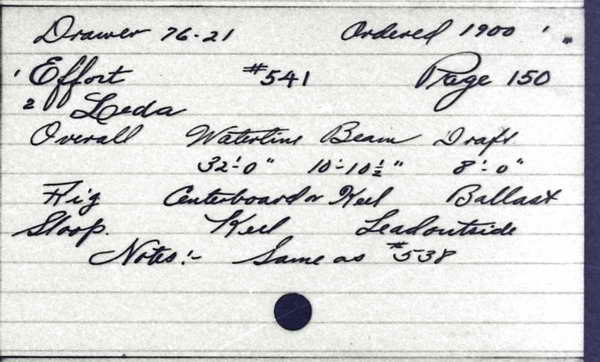 Drawer 76-21 Ordered 1900
1 Effort #541 Page 150
2 Leda
Overall Waterline Beam Draft
32'-0" 10'-10½" 8'-0"
Rig Centerboard or Keel Ballast
Sloop. Keel Lead outside
Notes:- Same as #538